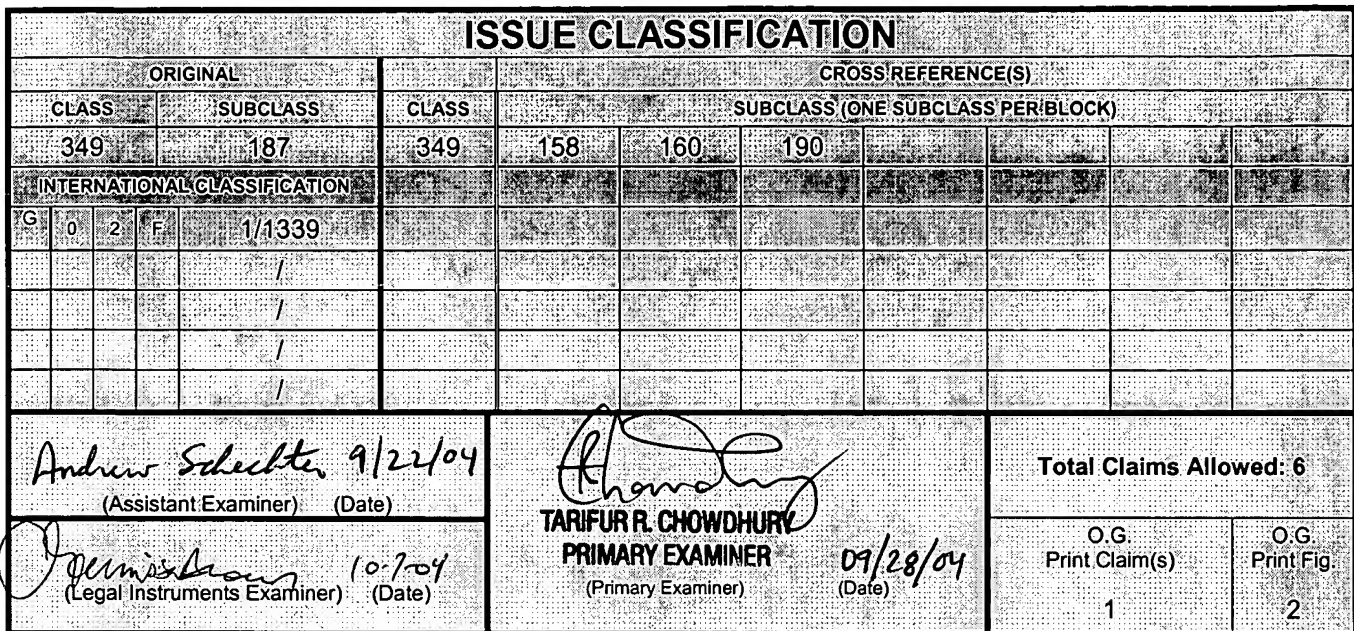 ISSUE CLASSIFICATION
ORIGINAL CROSS REFERENCE(S)
CLASS SUBCLASS CLASS SUBCLASS (ONE SUBCLASS PER BLOCK)
349 187 349 158 160 190
INTERNATIONAL CLASSIFICATION
G 0 2 F 1/1339
/
/
/
/
Andrew Schechter 9/22/04
(Assistant Examiner) (Date)
10-7-04
(Legal Instruments Examiner) (Date)
Chowdhury
TARIFUR R. CHOWDHURY
PRIMARY EXAMINER 09/28/04
(Primary Examiner) (Date)
Total Claims Allowed: 6
O.G. Print Claim(s)
1
O.G. Print Fig.
2